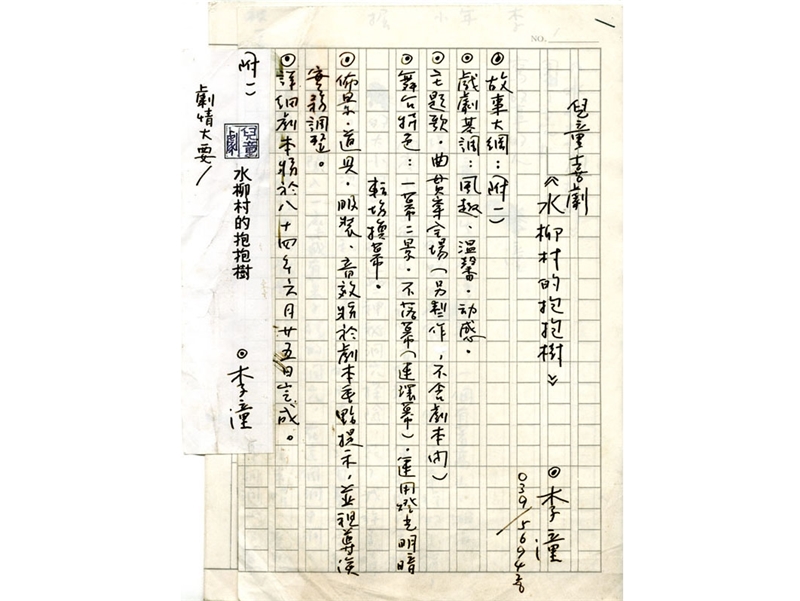 NO.
兒童喜劇
《水柳村的抱抱樹》
◎李潼
◎故事大綱：附(一)
◎戲劇基調：風趣、溫馨、动感。
◎主題歌，曲貫串全場（另製作，不含劇本內）
◎舞台特色：一幕二景，不落幕（連環幕），運用燈光明暗
轉場換幕。
◎佈景、道具、服裝、音效將於劇本重點提示，並視導演
實務調整。
◎詳細劇本將於八十四年六月廿五日完成。
附(一)
兒童劇
水柳村的抱抱樹
◎李潼
劇情大要／